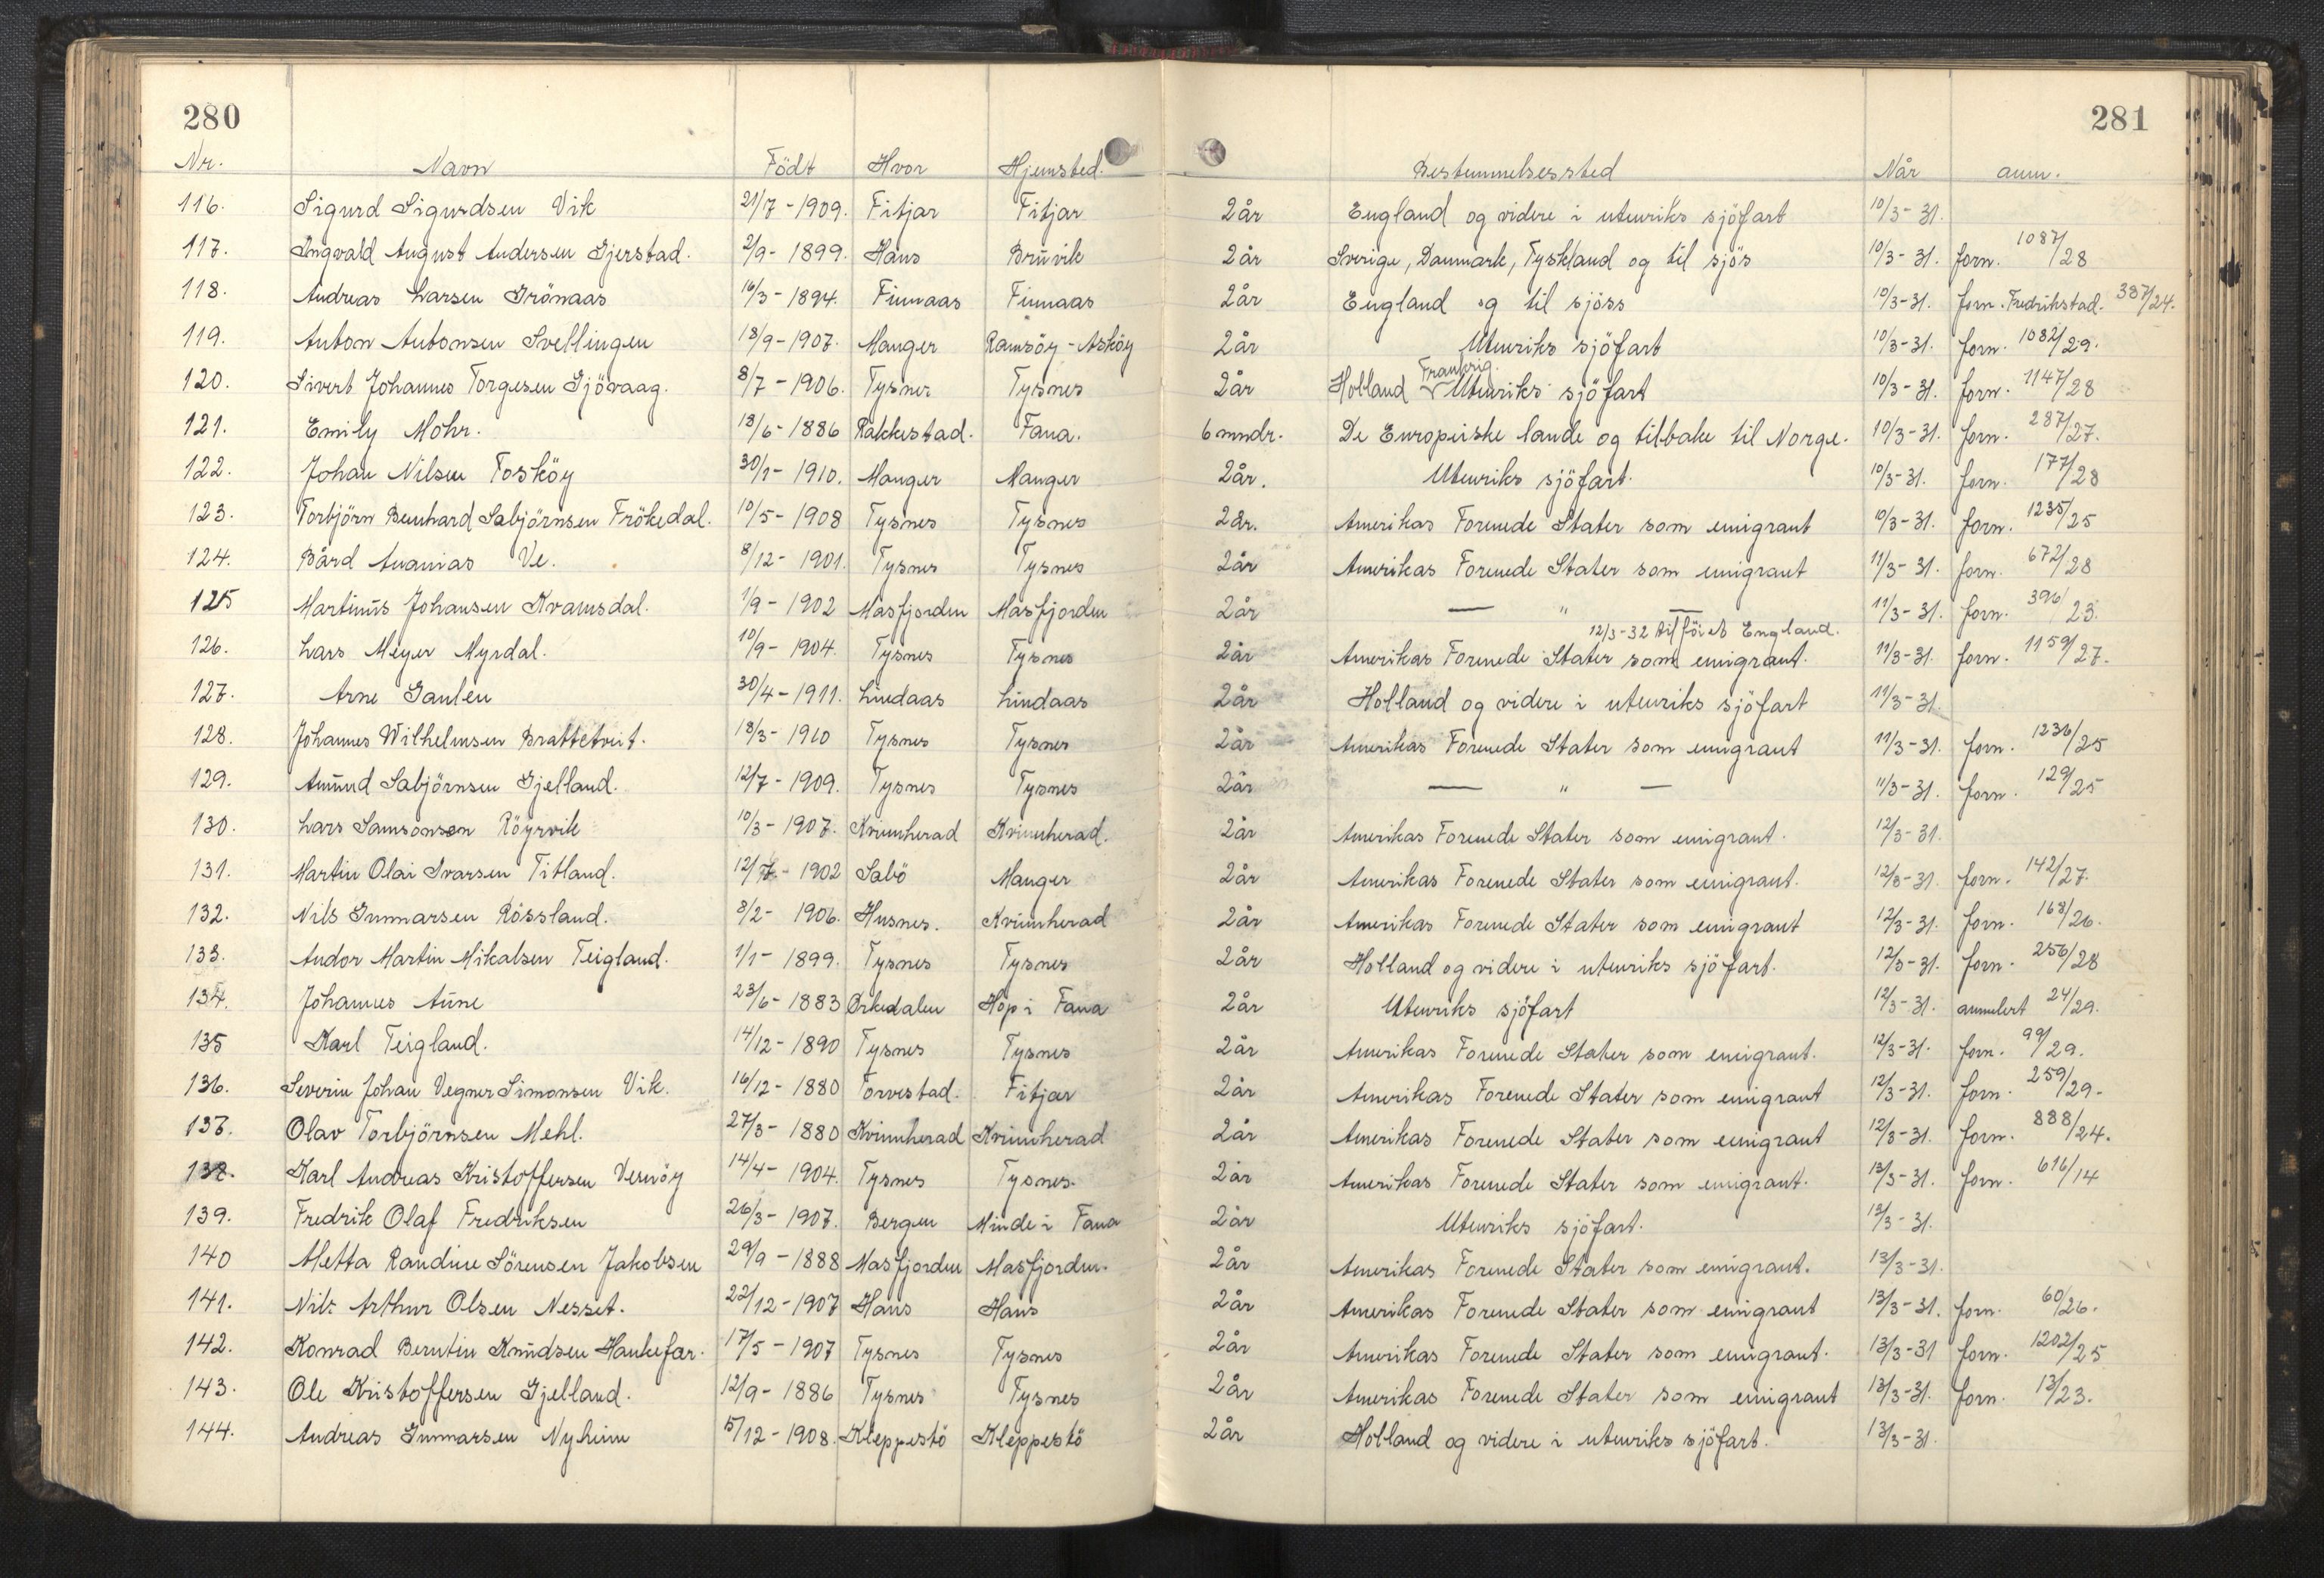 280 281
Nr. Navn Födt Hvor Hjemsted. Bestemmelsessted Når anm.
116. Sigurd Sigurdsen Vik 21/7 - 1909. Fitjar Fitjar 2 år England og videre i utenriks sjöfart 10/3-31.
117. Ingvald August Andersen Gjerstad. 2/9 - 1899. Haus Bruvik 2 år Sverige, Danmark, Tyskland og til sjös 10/3-31. forn. 1087/28
118. Andreas Larsen Grönaas 16/3 - 1894. Finnaas Finnaas 2 år England og til sjöss 10/3-31. forn. Fredrikstad. 387/24.
119. Anton Antonsen Svellingen 18/9 - 1907. Manger Ramsöy - Asköy 2 år Utenriks sjöfart 10/3-31. forn. 1082/29.
120. Sivert Johannes Torgesen Gjövaag. 8/7 - 1906. Tysnes Tysnes 2 år Holland Frankrig. Utenriks sjöfart 10/3-31. forn. 1147/28
121. Emily Mohr. 18/6 - 1886 Rakkestad. Fana. 6 mndr. De Europeiske lande og tilbake til Norge. 10/3-31. forn. 287/27.
122. Johan Nilsen Tosköy 30/1 - 1910. Manger Manger 2 år. Utenriks sjöfart. 10/3-31. forn. 177/28
123. Torbjörn Bernhard Sabjörnsen Frökedal. 10/5 - 1908 Tysnes Tysnes 2 år. Amerikas Forenede Stater som emigrant 10/3-31. forn. 1235/25
124. Bård Ananias Ve. 8/12 - 1901. Tysnes Tysnes 2 år Amerikas Forenede Stater som emigrant 11/3-31. forn. 672/28
125 Martinus Johansen Kvamsdal. 1/9 - 1902 Masfjorden Masfjorden 2 år — " — 11/3-31. forn. 396/23.
12/3-32 tilföiet England.
126. Lars Meyer Myrdal. 10/9 - 1904. Tysnes Tysnes 2 år Amerikas Forenede Stater som emigrant. 11/3-31. forn. 1159/27.
127. Arne Gaulen 30/4 - 1911. Lindaas Lindaas 2 år Holland og videre i utenriks sjöfart 11/3-31.
128. Johannes Wilhelmsen Brattetveit. 18/3 - 1910 Tysnes Tysnes 2 år Amerikas Forenede Stater som emigrant 11/3-31. forn. 1236/25
129. Amund Sabjörnsen Gjelland. 12/7 - 1909. Tysnes Tysnes 2 år — " — 11/3-31. forn. 129/25
130. Lars Samsonsen Röyrvik 10/3 - 1907. Kvinnherad Kvinnherad. 2 år Amerikas Forenede Stater som emigrant. 12/3-31.
131. Martin Olai Ivarsen Titland. 12/7 - 1902 Sabö Manger 2 år Amerikas Forenede Stater som emigrant. 12/3-31. forn. 142/27.
132. Nils Gunnarsen Rössland. 8/2 - 1906. Husnes. Kvinnherad 2 år Amerikas Forenede Stater som emigrant 12/3-31. forn. 168/26.
133. Andor Martin Mikalsen Teigland. 1/1 - 1899. Tysnes Tysnes 2 år Holland og videre i utenriks sjöfart. 12/3-31. forn. 256/28
134. Johannes Aune 23/6 - 1883 Orkedalen Hop i Fana 2 år Utenriks sjöfart 12/3-31. annulert 24/29.
135 Karl Teigland. 14/12 - 1890 Tysnes Tysnes 2 år Amerikas Forenede Stater som emigrant. 12/3-31. forn. 99/29.
136. Severin Johan Vegner Simonsen Vik. 16/12 - 1880 Torvestad. Fitjar 2 år Amerikas Forenede Stater som emigrant 12/3-31. forn. 259/29.
137. Olav Torbjörnsen Mehl. 27/3 - 1880 Kvinnherad Kvinnherad 2 år Amerikas Forenede Stater som emigrant 12/3-31. forn. 888/24.
138. Karl Andreas Kristoffersen Vernöy 14/4 - 1904. Tysnes Tysnes. 2 år Amerikas Forenede Stater som emigrant. 13/3-31. forn. 616/14
139. Fredrik Olaf Fredriksen 26/3 - 1907. Bergen Minde i Fana 2 år Utenriks sjöfart. 13/3-31.
140 Metta Randine Sörensen Jakobsen 29/9 - 1888 Masfjorden Masfjorden. 2 år Amerikas Forenede Stater som emigrant. 13/3-31.
141. Nils Arthur Olsen Nesset. 22/12 - 1907 Haus Haus 2 år Amerikas Forenede Stater som emigrant 13/3-31. forn. 60/26.
142. Konrad Berntin Knudsen Haukefær. 17/5 - 1907 Tysnes Tysnes 2 år Amerikas Forenede Stater som emigrant. 13/3-31 forn. 1202/25
143. Ole Kristoffersen Gjelland. 12/9 - 1886 Tysnes Tysnes 2 år Amerikas Forenede Stater som emigrant 13/3-31. forn. 13/23.
144. Andreas Gunnarsen Nyheim 5/12 - 1908. Kleppestö Kleppestö 2 år Holland og videre i utenriks sjöfart. 13/3-31.